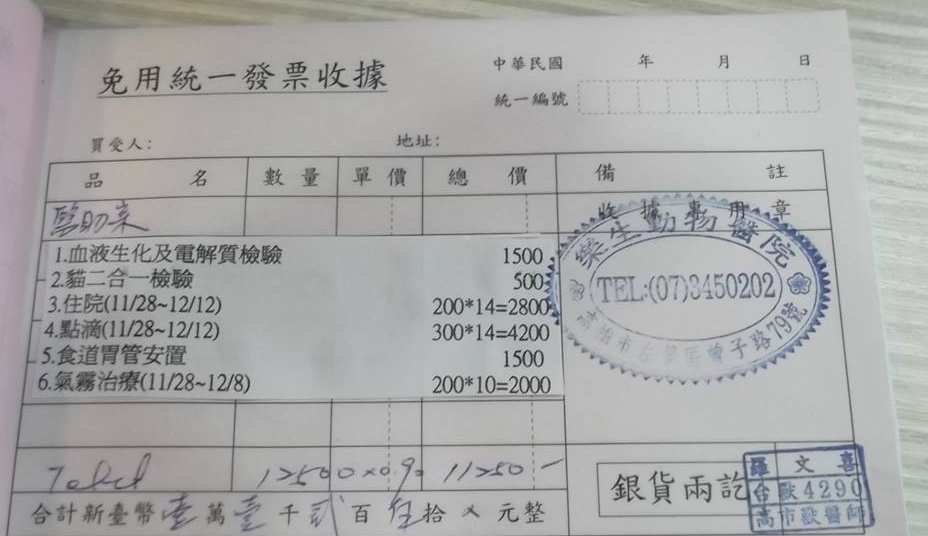 免用統一發票收據
中華民國 年 月 日
統一編號
買受人： 地址：
品名 數量 單價 總價 備註
收據專用章
樂生動物醫院
TEL:(07)3450202
高雄市左營區曾子路79號
1.血液生化及電解質檢驗 1500
2.貓二合一檢驗 500
3.住院(11/28~12/12) 200*14=2800
4.點滴(11/28~12/12) 300*14=4200
5.食道胃管安置 1500
6.氣霧治療(11/28~12/8) 200*10=2000
Total 12500×0.90 11250-
銀貨兩訖
羅文喜
台獸4290
高市獸醫師
合計新臺幣壹萬壹千貳百伍拾 元整